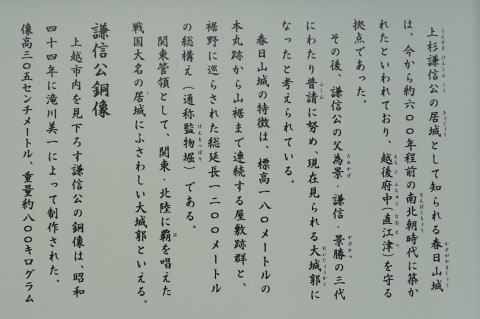 上杉謙信公の居城として知られる春日山城
は、今から約六〇〇年程前の南北朝時代に築か
れたといわれており、越後府中（直江津）を守る
拠点であった。
その後、謙信公の父為景・謙信・景勝の三代
にわたり普請に努め、現在見られる大城郭に
なったと考えられている。
春日山城の特徴は、標高一八〇メートルの
本丸跡から山裾まで連続する屋敷跡群と、
裾野に巡らされた総延長一二〇〇メートル
の総構え（通称監物堀）である。
関東管領として、関東・北陸に覇を唱えた
戦国大名の居城にふさわしい大城郭といえる。
謙信公銅像
上越市内を見下ろす謙信公の銅像は、昭和
四十四年に滝川美一によって制作された。
像高三〇五センチメートル、重量約八〇〇キログラム